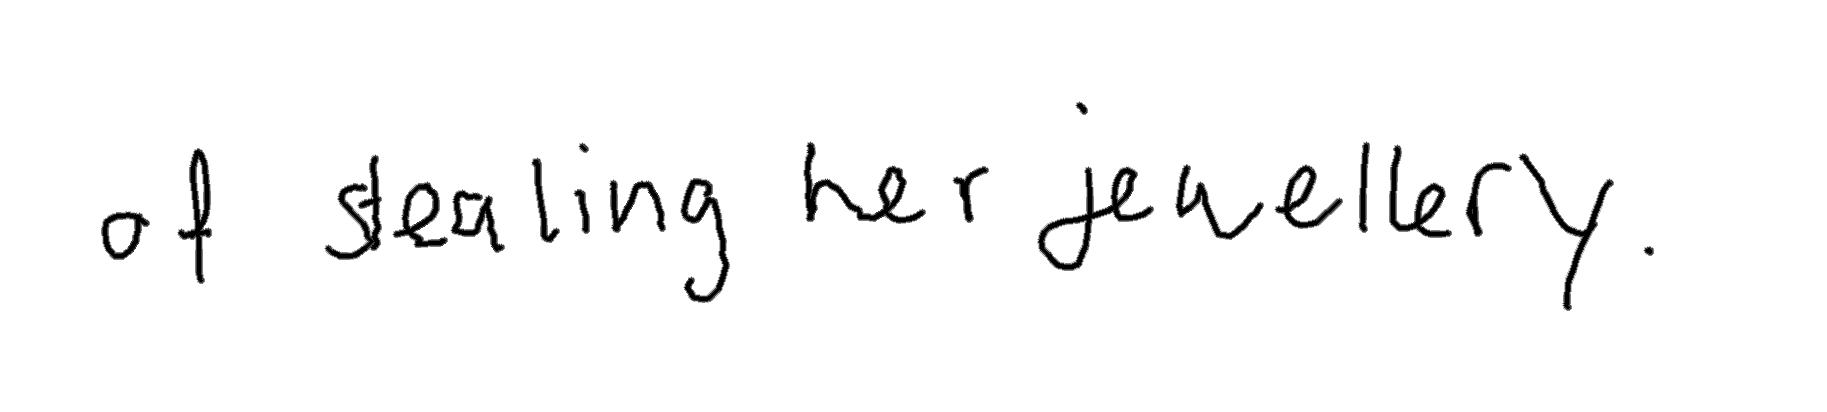 of stealing her jewellery.